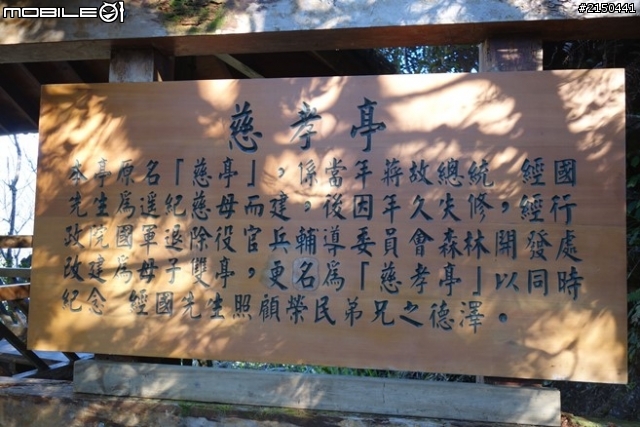 MOBILE01
#2150441
慈孝亭
本亭原名「慈亭」，係當年蔣故總統 經國
先生為遙紀慈母而建，後因年久失修，經行
政院國軍退除役官兵輔導委員會森林開發處
改建為母子雙亭，更名為「慈孝亭」以同時
紀念 經國先生照顧榮民弟兄之德澤。